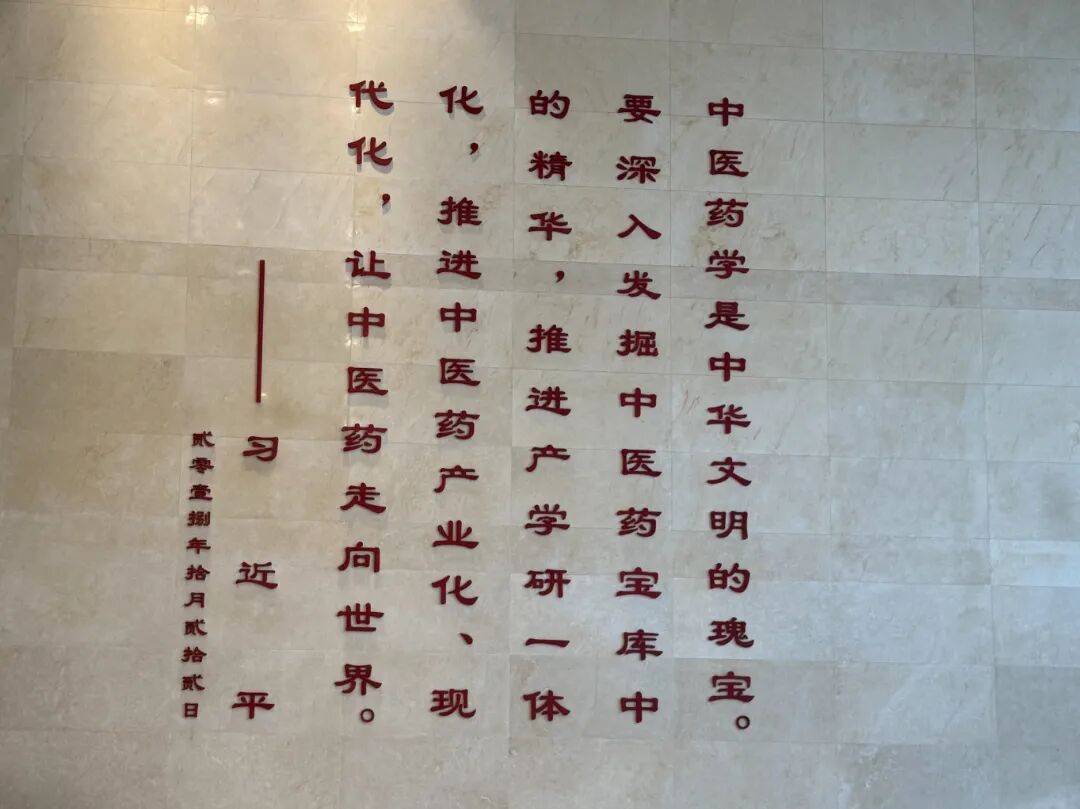 中医药学是中华文明的瑰宝。
要深入发掘中医药宝库中
的精华，推进产学研一体
化，推进中医药产业化、现
代化，让中医药走向世界。
——习近平
贰零壹捌年拾月贰拾贰日